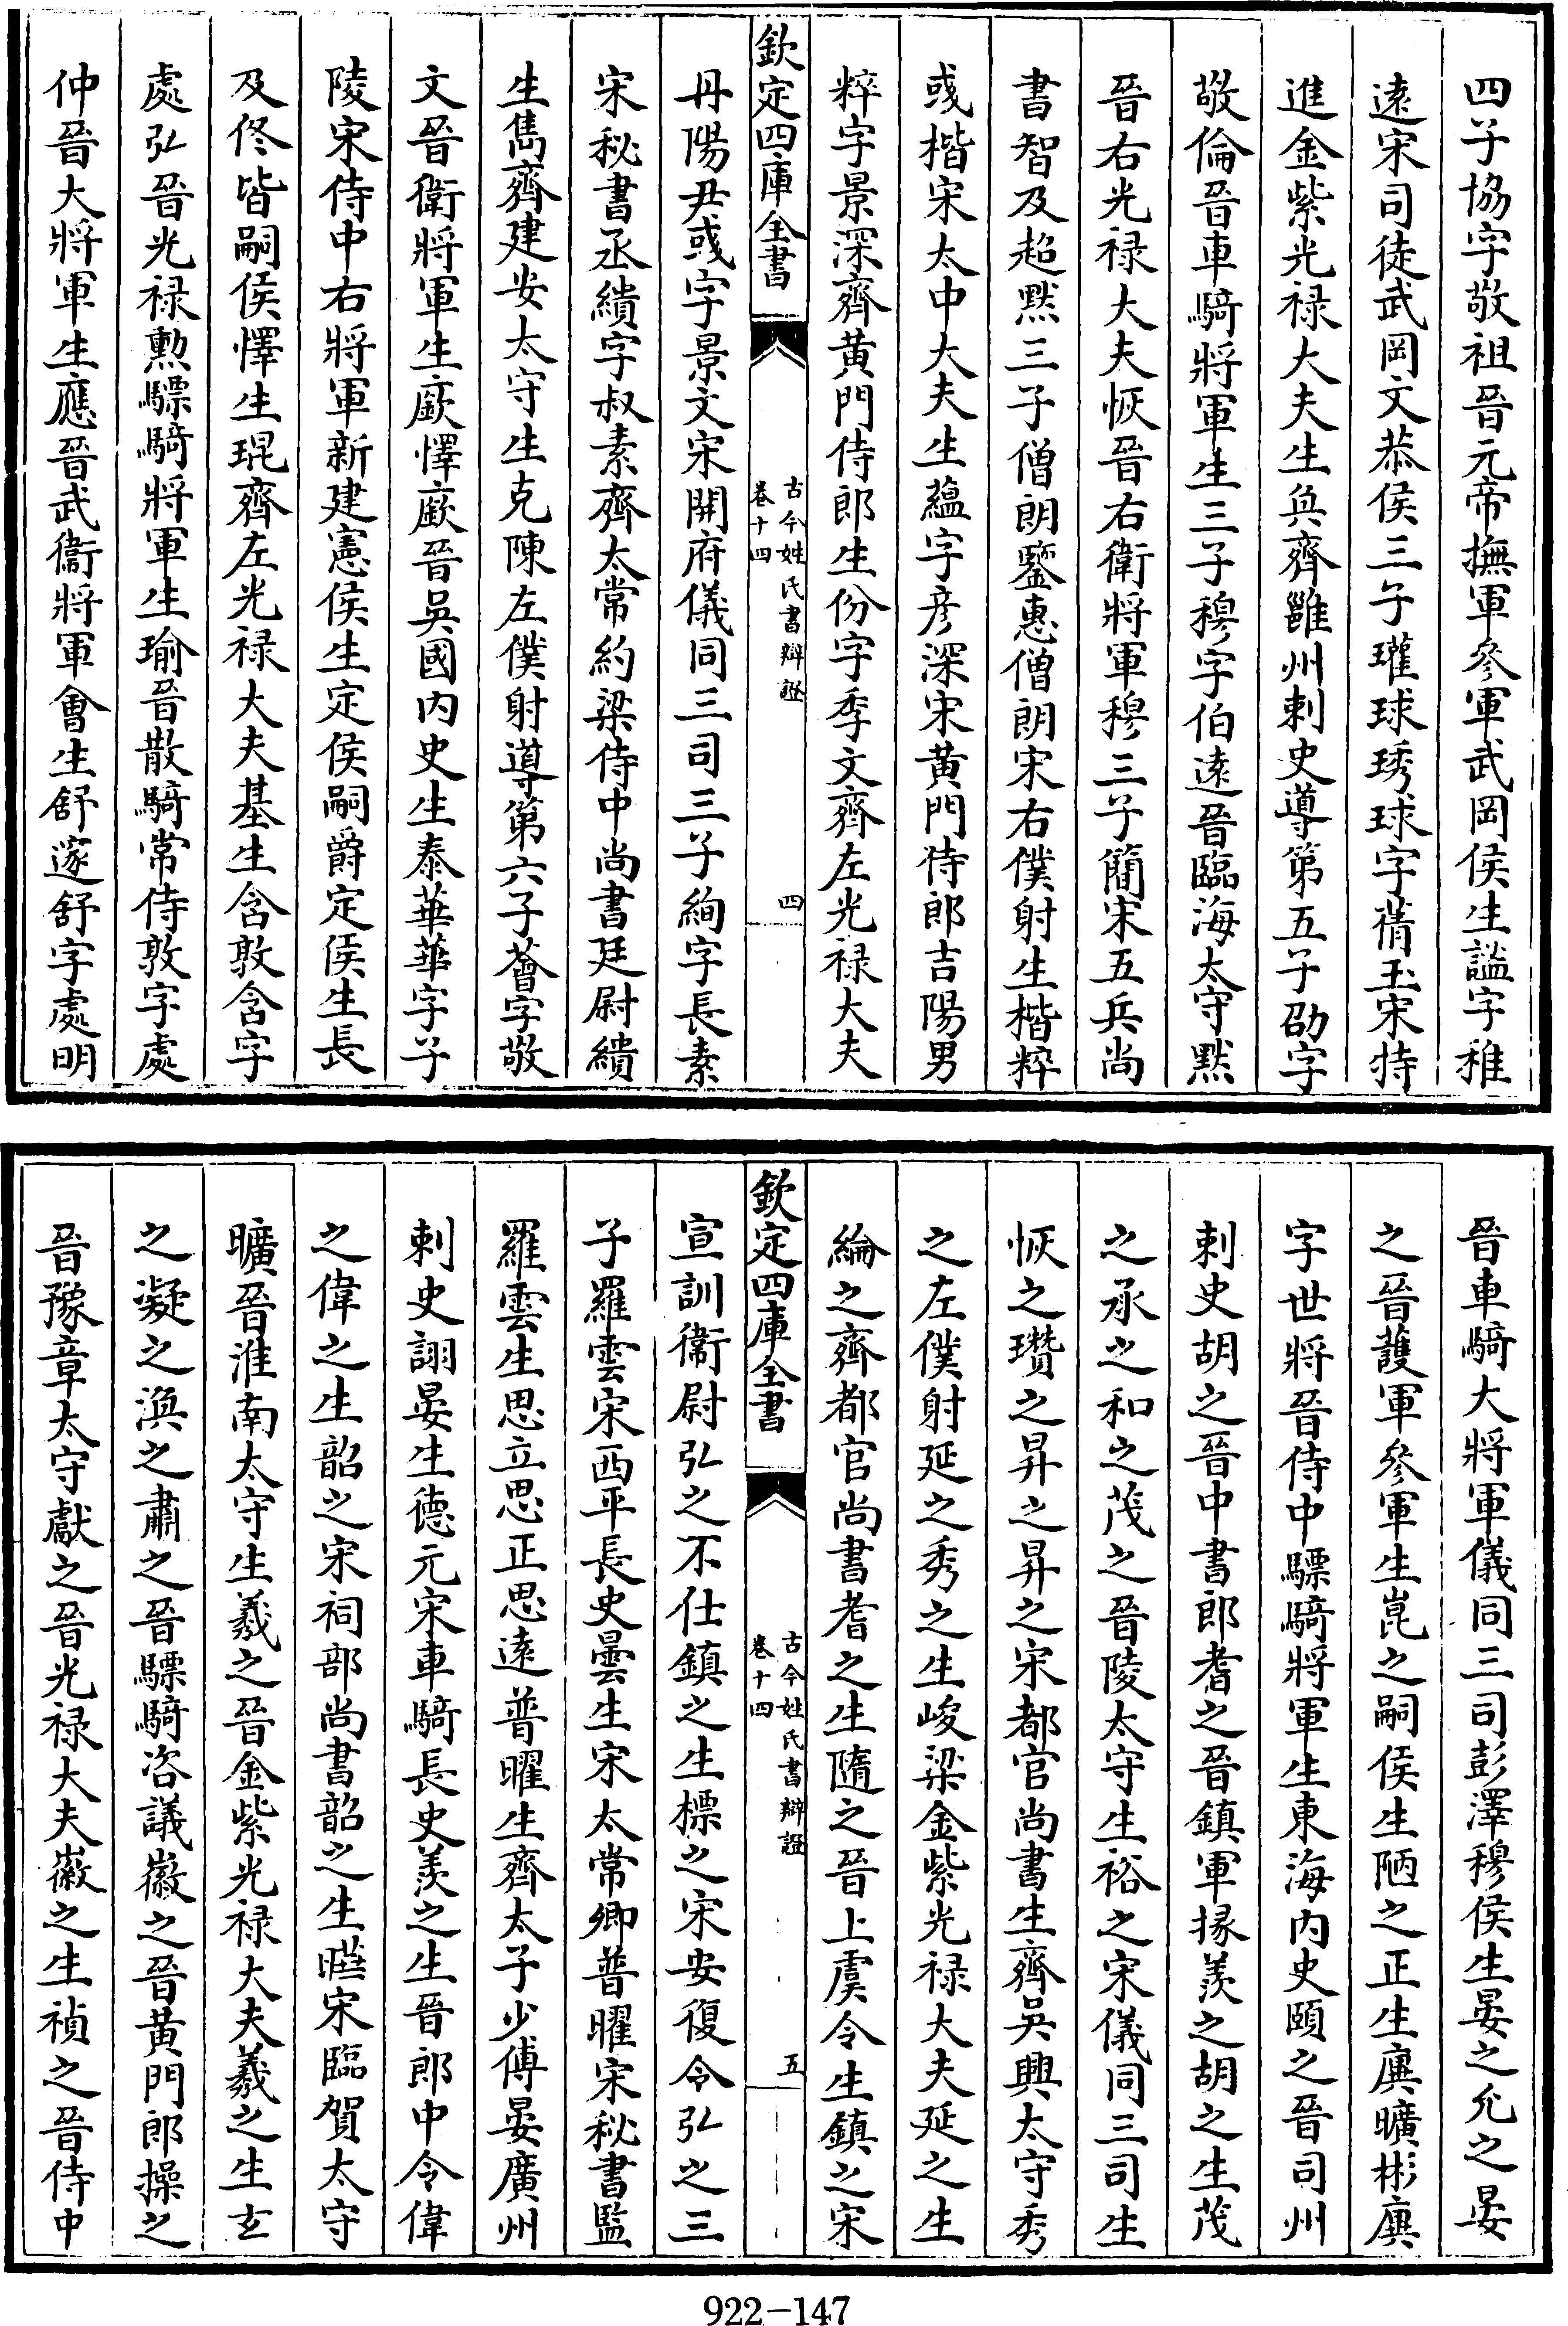 四子協字敬祖晉元帝撫軍參軍武岡侯生謐字稚
遠宋司徒武岡文恭侯三子瓘球琇球字蒨玉宋特
進金紫光祿大夫生奐齊雝州刺史導第五子劭字
敬倫晉車騎將軍生三子穆字伯遠晉臨海太守黙
晉右光祿大夫恢晉右衛將軍穆三子簡宋五兵尚
書智及超黙三子僧朗鑒惠僧朗宋右僕射生楷粹
彧楷宋太中大夫生藴字彦深宋黄門侍郎吉陽男
粹字景深齊黄門侍郎生份字季文齊左光祿大夫
欽定四庫全書
古今姓氏書辯證
卷十四
四
丹陽尹彧字景文宋開府儀同三司三子絢字長素
宋秘書丞繢字叔素齊太常約梁侍中尚書廷尉繢
生雋齊建安太守生克陳左僕射導第六子薈字敬
文晉衛將軍生廞懌廞晉吳國内史生泰華華字子
陵宋侍中右將軍新建憲侯生定侯嗣爵定侯生長
及佟皆嗣侯懌生琨齊左光祿大夫基生含敦含字
處弘晉光祿勲驃騎將軍生瑜晉散騎常侍敦字處
仲晉大將軍生應晉武衛將軍會生舒邃舒字處明
晉車騎大將軍儀同三司彭澤穆侯生晏之允之晏
之晉護軍參軍生崑之嗣侯生陋之正生廙曠彬廙
字世將晉侍中驃騎將軍生東海内史頤之晉司州
刺史胡之晉中書郎耆之晉鎮軍掾羨之胡之生茂
之承之和之茂之晉陵太守生裕之宋儀同三司生
恢之瓚之昇之昇之宋都官尚書生齊吳興太守秀
之左僕射延之秀之生峻梁金紫光祿大夫延之生
綸之齊都官尚書耆之生隨之晉上虞令生鎮之宋
欽定四庫全書
古今姓氏書辯證
卷十四
五
宣訓衛尉弘之不仕鎮之生標之宋安復令弘之三
子羅雲宋西平長史曇生宋太常卿普曜宋秘書監
羅雲生思立思正思遠普曜生齊太子少傅晏廣州
刺史詡晏生德元宋車騎長史羨之生晉郎中令偉
之偉之生韶之宋祠部尚書韶之生曄宋臨賀太守
曠晉淮南太守生羲之晉金紫光祿大夫羲之生玄
之凝之渙之肅之晉驃騎咨議徽之晉黄門郎操之
晉豫章太守獻之晉光祿大夫徽之生禎之晉侍中
922-147